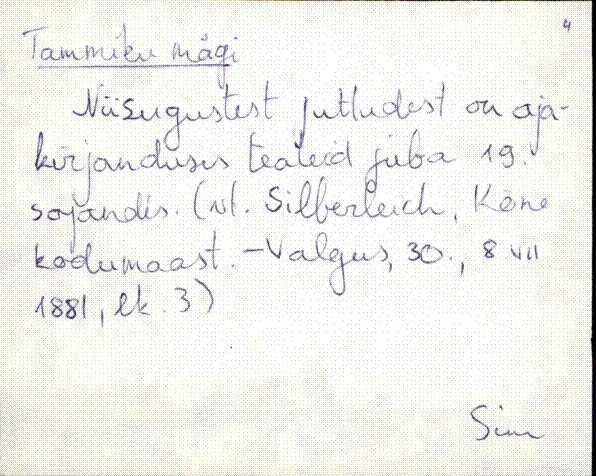 4
Tammiku mägi
Niisugustest jutludest on aja-
kirjanduses teateid juba 19.
sajandis. (vt. Silberleich, Kõne
kodumaast. - Valgus, 30., 8 VII
1881, lk. 3)